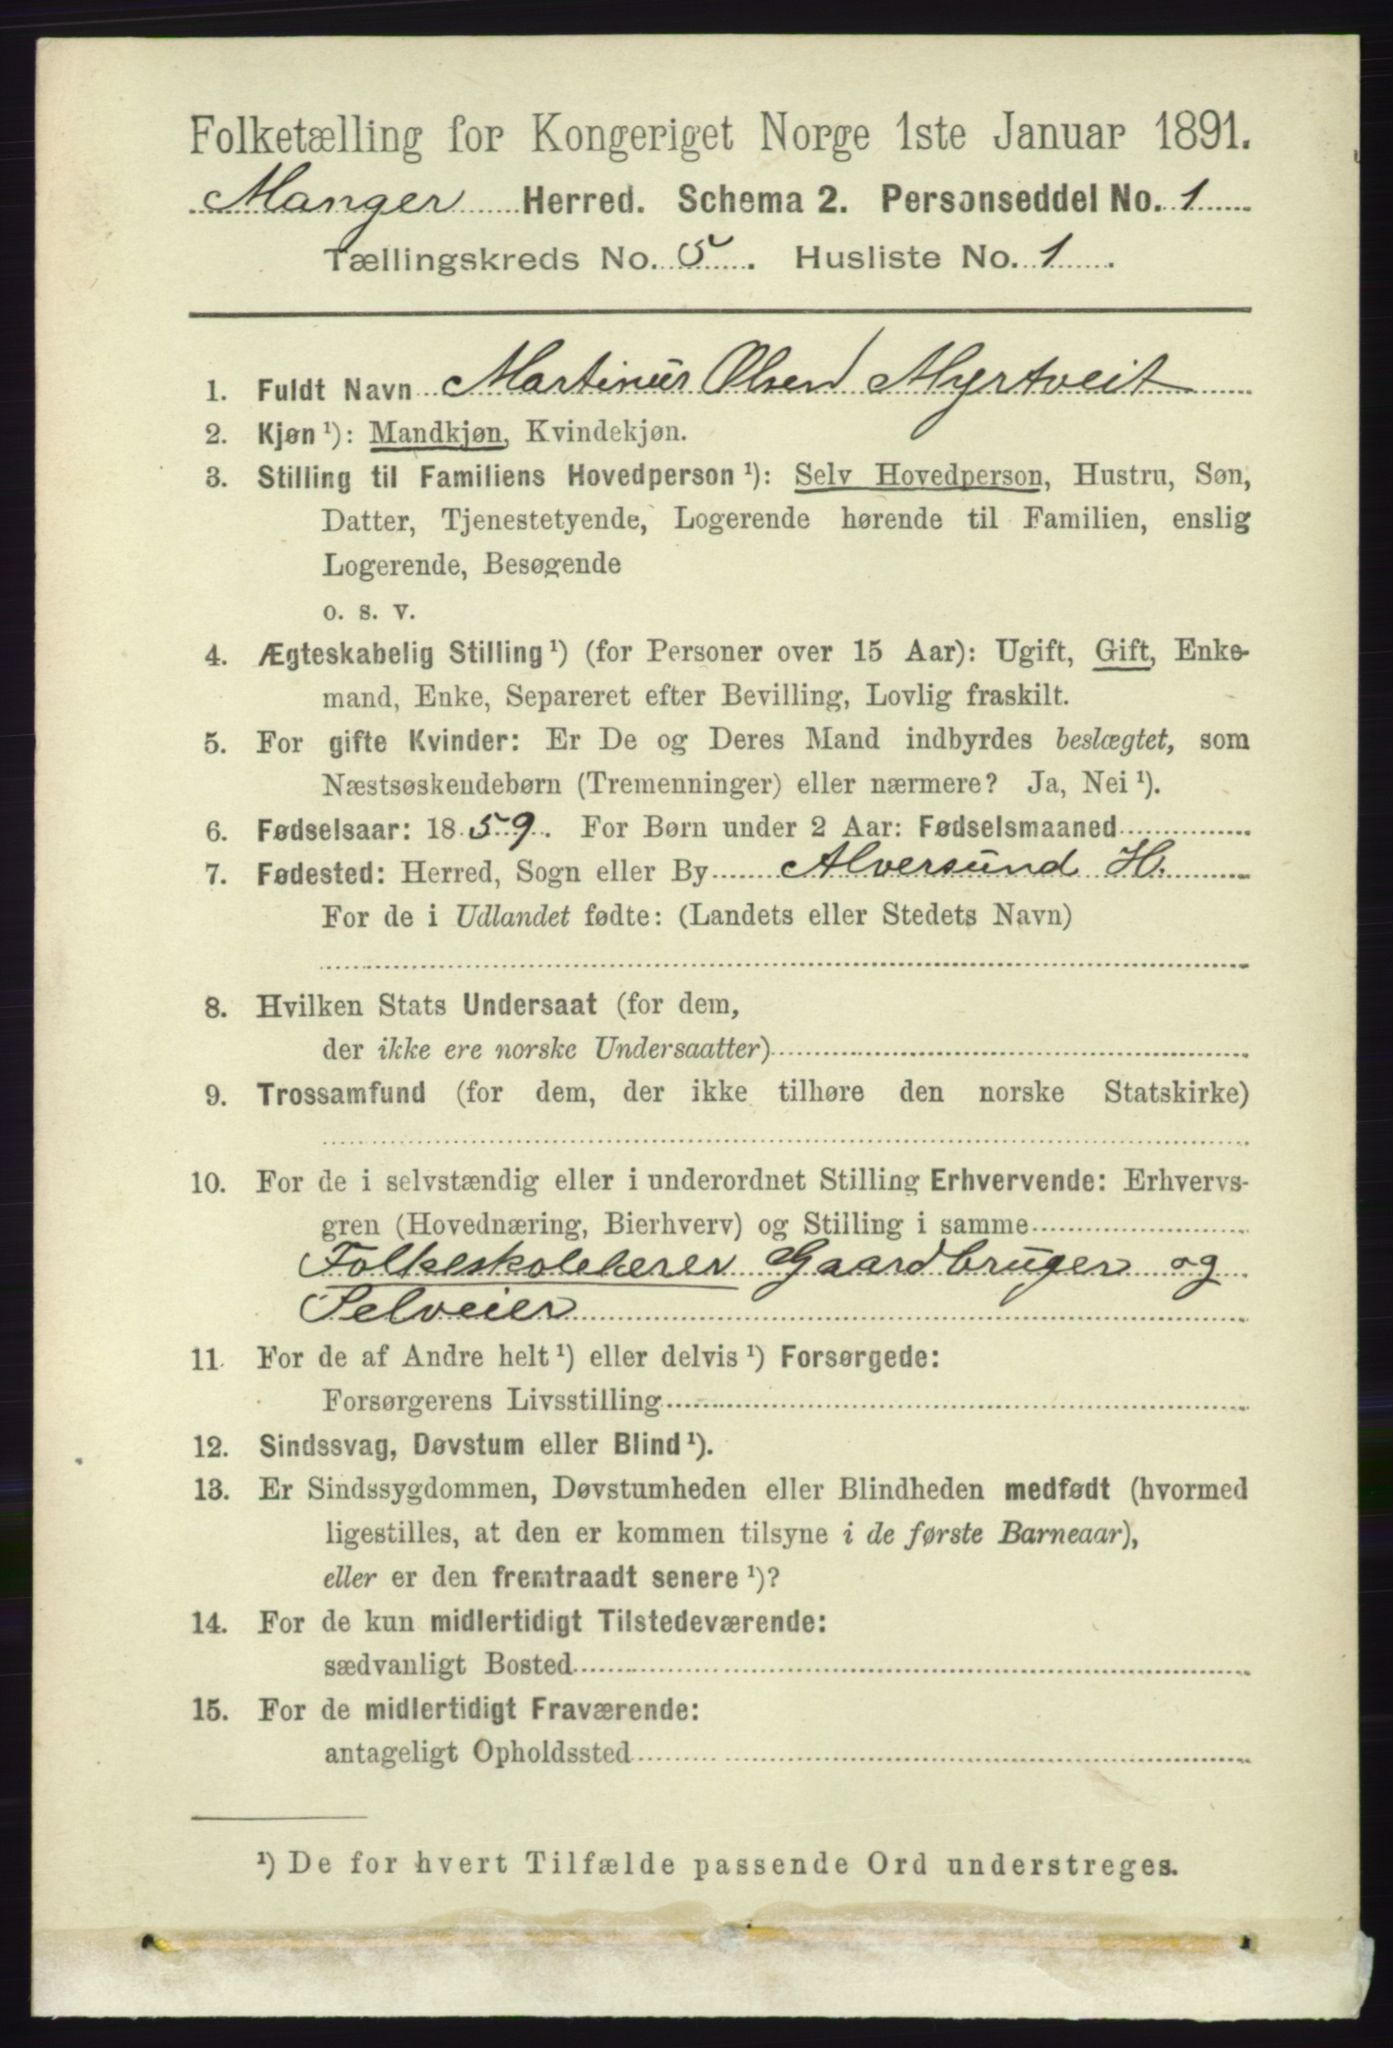 Folketælling for Kongeriget Norge 1ste Januar 1891.
Manger Herred. Schema 2. Personseddel No. 1
Tællingskreds No. 5. Husliste No. 1.
1. Fuldt Navn Martinus Olsen Myrtveit
2. Kjøn ¹): Mandkjøn, Kvindekjøn.
3. Stilling til Familiens Hovedperson ¹): Selv Hovedperson, Hustru, Søn,
Datter, Tjenestetyende, Logerende hørende til Familien, enslig
Logerende, Besøgende
o. s. v.
4. Ægteskabelig Stilling ¹) (for Personer over 15 Aar): Ugift, Gift, Enke-
mand, Enke, Separeret efter Bevilling, Lovlig fraskilt.
5. For gifte Kvinder: Er De og Deres Mand indbyrdes beslægtet, som
Næstsøskendebørn (Tremenninger) eller nærmere? Ja, Nei ¹).
6. Fødselsaar: 1859. For Børn under 2 Aar: Fødselsmaaned
7. Fødested: Herred, Sogn eller By Alversund H.
For de i Udlandet fødte: (Landets eller Stedets Navn)
8. Hvilken Stats Undersaat (for dem,
der ikke ere norske Undersaatter)
9. Trossamfund (for dem, der ikke tilhøre den norske Statskirke)
10. For de i selvstændig eller i underordnet Stilling Erhvervende: Erhvervs-
gren (Hovednæring, Bierhverv) og Stilling i samme
Folkeskolelærer Gaardbruger og
Selveier
11. For de af Andre helt ¹) eller delvis ¹) Forsørgede:
Forsørgerens Livsstilling
12. Sindssvag, Døvstum eller Blind ¹).
13. Er Sindssygdommen, Døvstumheden eller Blindheden medfødt (hvormed
ligestilles, at den er kommen tilsyne i de første Barneaar),
eller er den fremtraadt senere ¹)?
14. For de kun midlertidigt Tilstedeværende:
sædvanligt Bosted
15. For de midlertidigt Fraværende:
antageligt Opholdssted
¹) De for hvert Tilfælde passende Ord understreges.